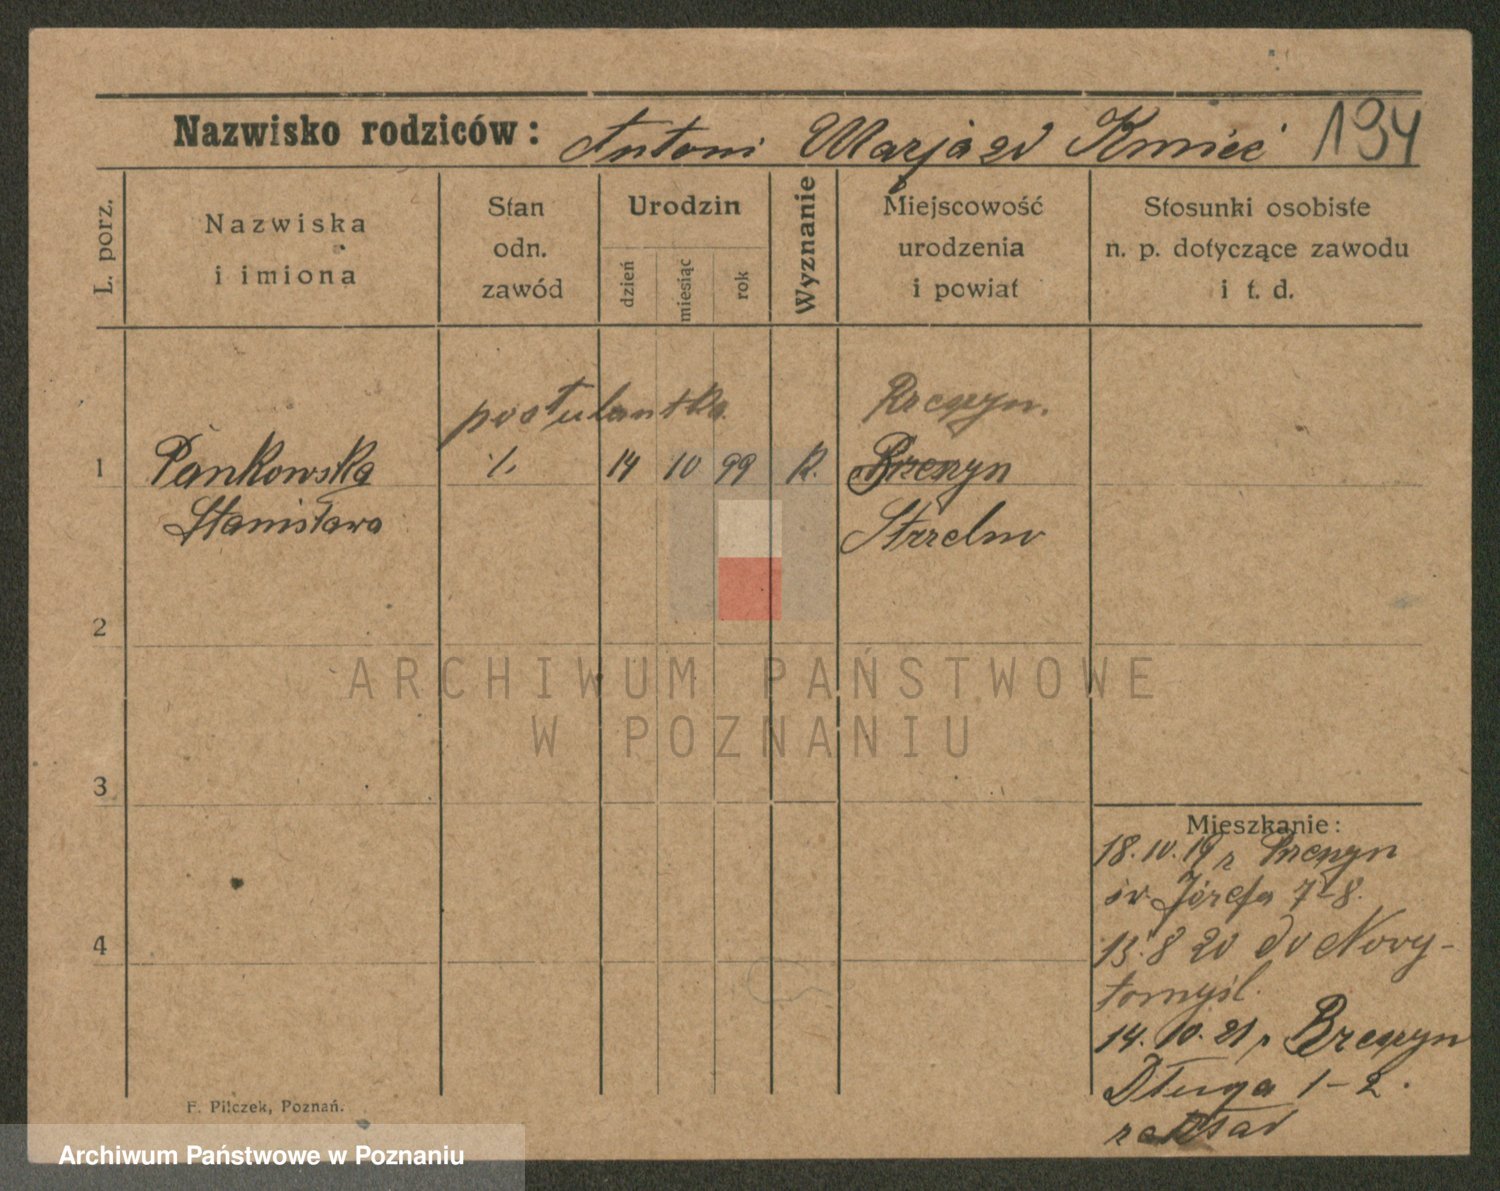 Nazwisko rodziców: Antoni Marja zd Kmieć 134
L. porz.
Nazwiska
i imiona
Stan
odn.
zawód
Urodzin
dzień
miesiąc
rok
Wyznanie
Miejscowość
urodzenia
i powiat
Stosunki osobiste
n. p. dotyczące zawodu
i t. d.
postulantka
1
Pankowska
Stanisława
14 10 99 k.
Strzelno
2
ARCHIWUM PAŃSTWOWE
W POZNANIU
3
Mieszkanie:
18.10.19 z
św. Józefa 7-8.
4
13.8 20 do Nowy-
tomyśl.
14.10.21 z
Długa 1-2.
zakład
F. Pilczek, Poznań.
Archiwum Państwowe w Poznaniu